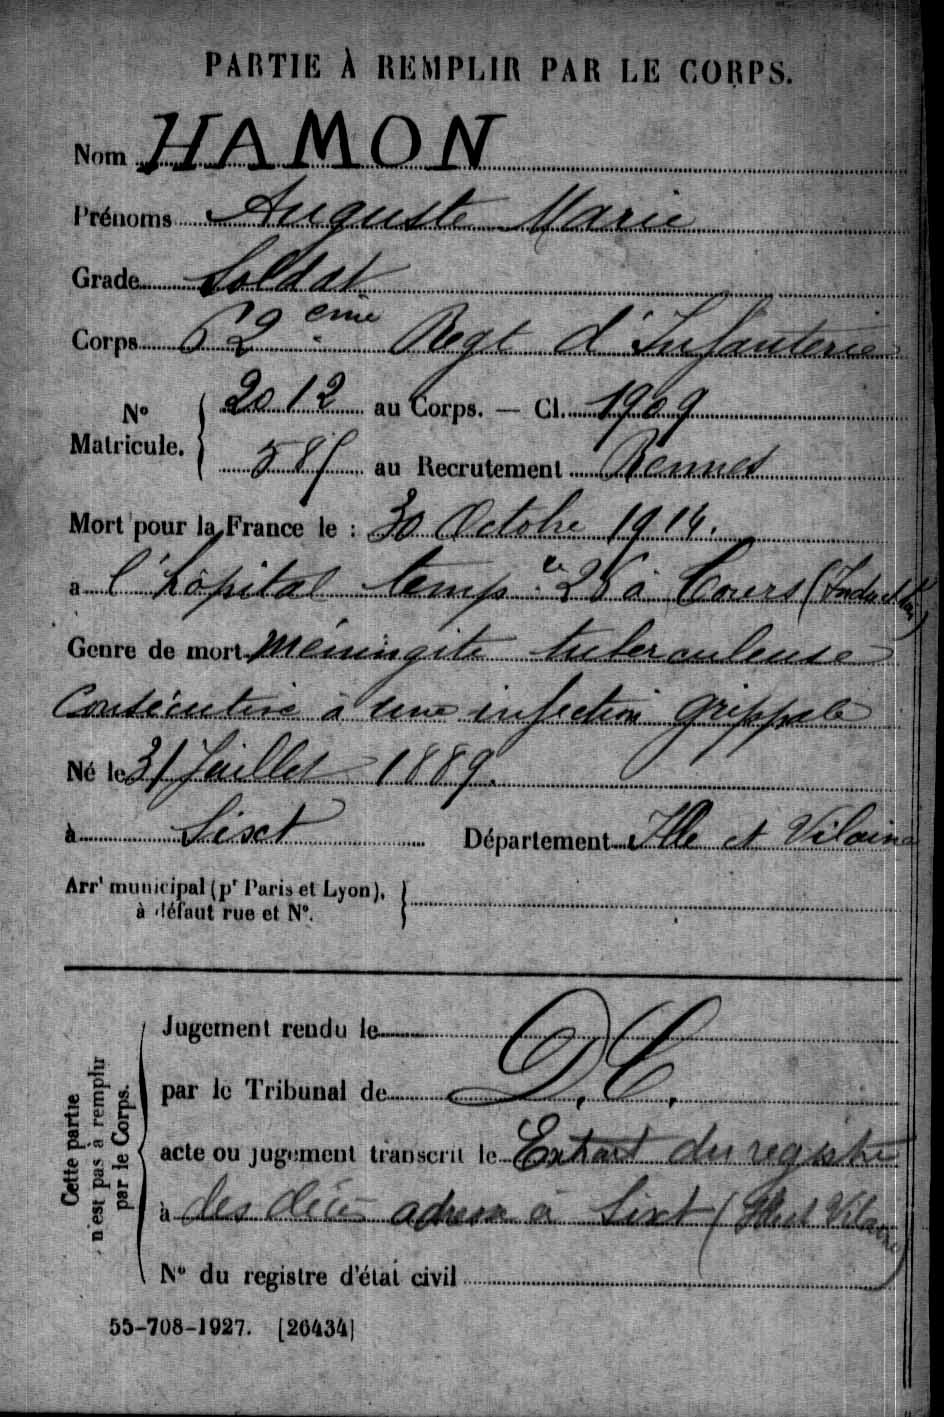 PARTIE À REMPLIR PAR LE CORPS.
Nom HAMON
Prénoms Auguste Marie
Grade Soldat
Corps 62ème Regt d'Infanterie
N° Matricule. { 2012 au Corps. — Cl. 1909
585 au Recrutement Rennes
Mort pour la France le : 30 Octobre 1914.
a l'hôpital temp.re 28 à Tours (Indre et Loire)
Genre de mort méningite tuberculeuse
Consécutive à une infection grippale
Né le 31 Juillet 1889.
à Sixt Département Ille et Vilaine
Arrt municipal (pr Paris et Lyon), à défaut rue et N°. }
Cette partie n'est pas à remplir par le Corps.
Jugement rendu le
par le Tribunal de D.C.
acte ou jugement transcrit le Extrait du registre
à des décès adressé à Sixt (Ille et Vilaine)
N° du registre d'état civil
55-708-1927. [26434]